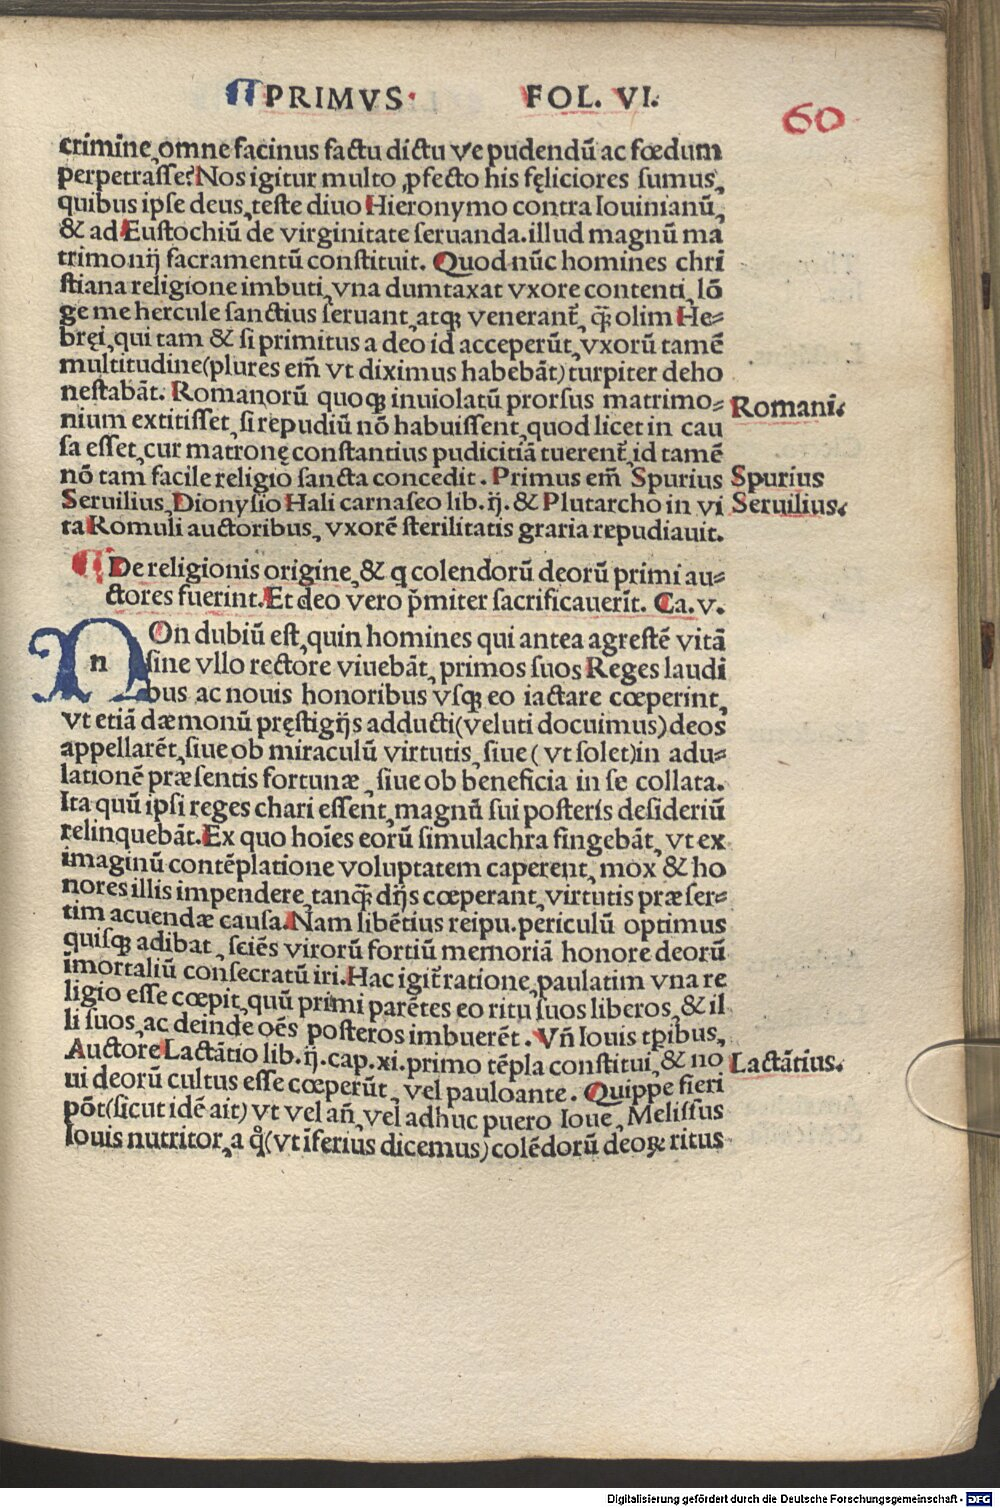 ¶ PRIMVS· FOL. VI.
60
crimine, omne facinus factu dictu ve pudendū ac fœdum
perpetrasse? Nos igitur multo ꝓfecto his fęliciores sumus,
quibus ipse deus, teste diuo Hieronymo contra Iouinianū,
& ad Eustochiū de virginitate seruanda. illud magnū ma
trimonij sacramentū constituit. Quod nūc homines chri
stiana religione imbuti, vna dumtaxat vxore contenti, lō
ge me hercule sanctius seruant, atqꝫ venerant᷑, q̄ꝫ olim He-
bręi, qui tam & si primitus a deo id acceperūt, vxorū tamē
multitudine (plures em̄ vt diximus habebāt) turpiter deho
nestabāt. Romanorū quoqꝫ inuiolatū prorsus matrimo-
nium extitisset, si repudiū nō habuissent, quod licet in cau
sa esset, cur matronę constantius pudicitiā tuerent᷑, id tamē
nō tam facile religio sancta concedit. Primus em̄ Spurius
Seruilius, Dionysio Hali carnaseo lib. ij. & Plutarcho in vi
ta Romuli auctoribus, vxorē sterilitatis graria repudiauit.
Romani.
Spurius
Seruilius.
¶ De religionis origine, & q colendorū deorū primi au-
ctores fuerint. Et deo vero p̄miter sacrificauerīt. Ca. v.
NOn dubiū est, quin homines qui antea agrestē vitā
sine vllo rectore viuebāt, primos suos Reges laudi
bus ac nouis honoribus vsqꝫ eo iactare cœperint,
vt etiā dæmonū pręstigijs adducti (veluti docuimus) deos
appellarēt, siue ob miraculū virtutis, siue (vt solet) in adu-
lationē præsentis fortunæ, siue ob beneficia in se collata.
Ita quū ipsi reges chari essent, magnū sui posteris desideriū
relinquebāt. Ex quo hoīes eorū simulachra fingebāt, vt ex
imaginū contēplatione voluptatem caperent, mox & ho
nores illis impendere, tanq̄ꝫ dijs cœperant, virtutis præser-
tim acuendæ causa. Nam libētius reipu. periculū optimus
quisqꝫ adibat, sciēs virorū fortiū memoriā honore deorū
īmortaliū consecratū iri. Hac igit᷑ ratione, paulatim vna re
ligio esse cœpit, quū primi parētes eo ritu suos liberos, & il
li suos, ac deinde oēs posteros imbuerēt. Vn̄ Iouis tꝑibus,
Auctore Lactātio lib. ij. cap. xi. primo tēpla constitui, & no
ui deorū cultus esse cœperūt, vel pauloante. Quippe fieri
pōt (sicut idē ait) vt vel an̄, vel adhuc puero Ioue, Melissus
Iouis nutritor, a q̊ (vt īferius dicemus) colēdorū deoꝝ ritus
Lactātius.
Digitalisierung gefördert durch die Deutsche Forschungsgemeinschaft - DFG